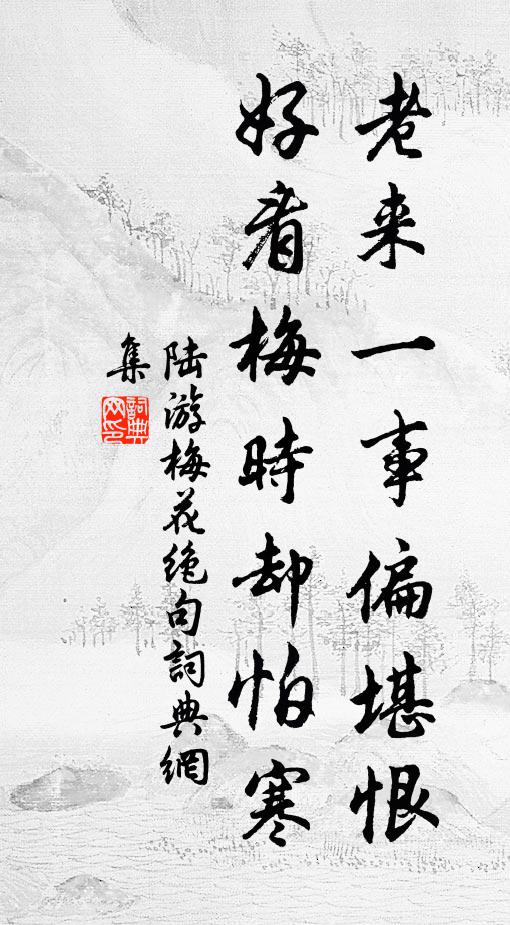 老来一事偏堪恨
好看梅時却怕寒
陆游梅花绝句詞典網
集
詞典
网印